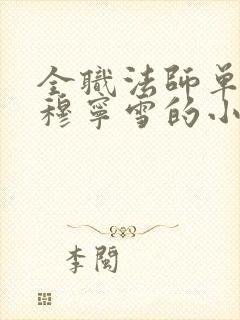 全職法師單
穆寧雪的小
李閩